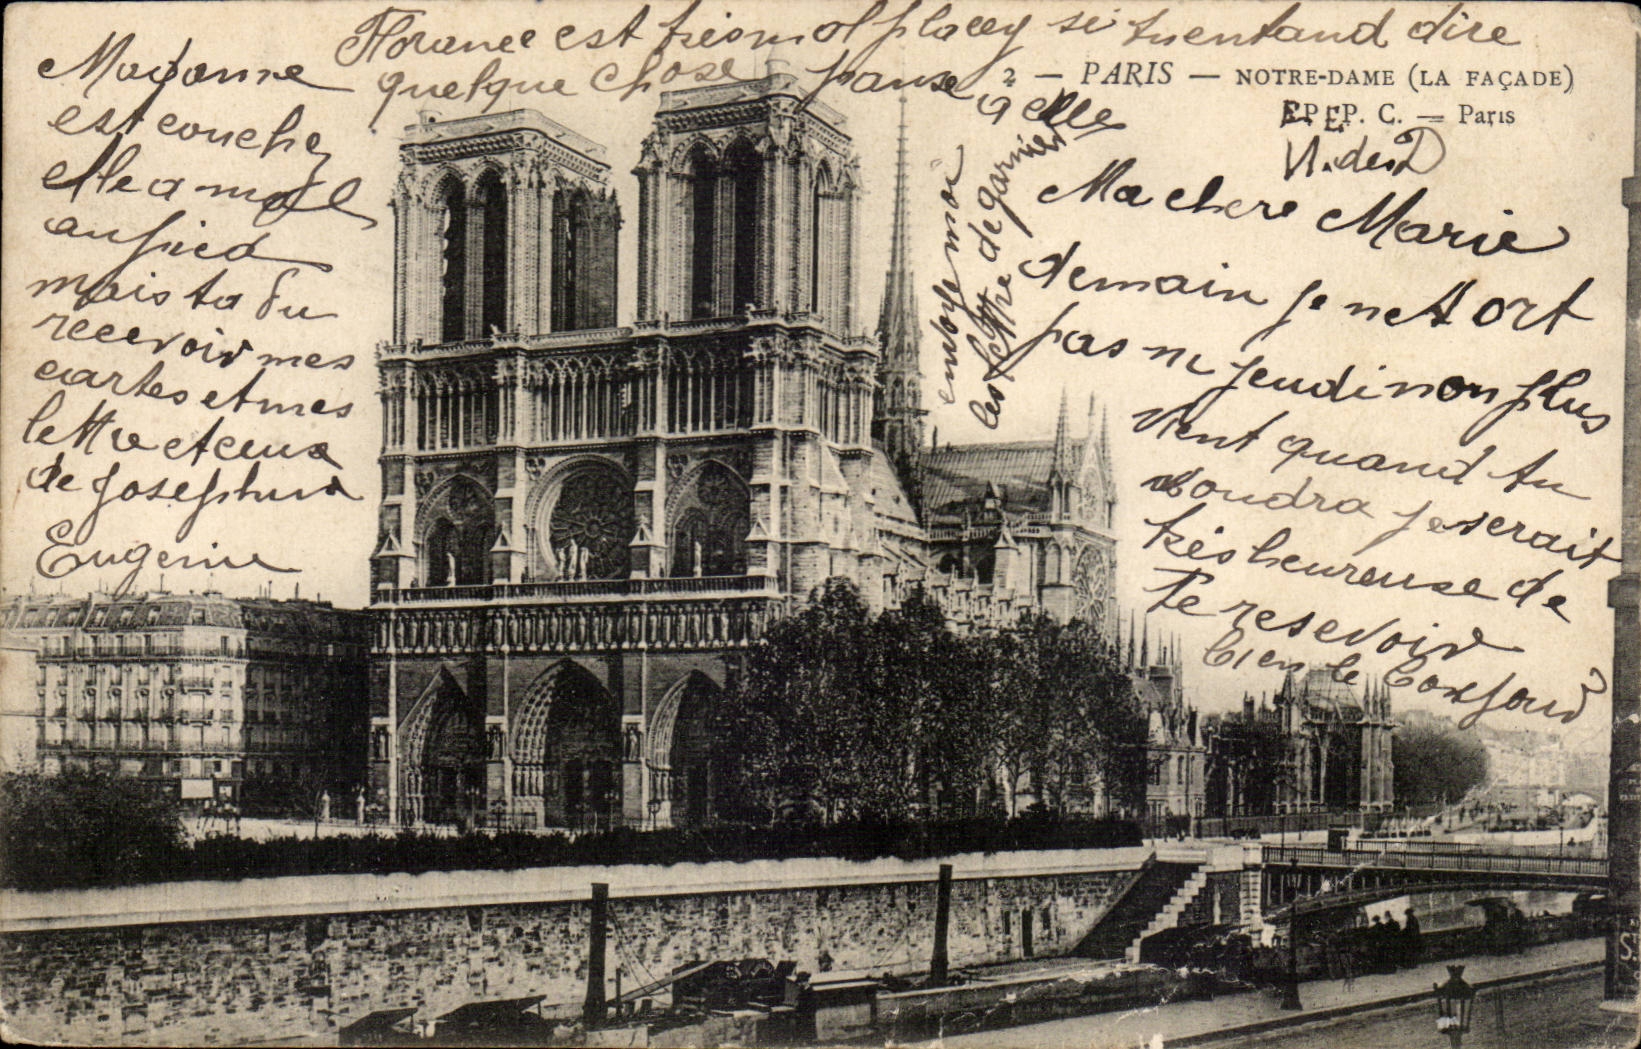 2 — PARIS — NOTRE-DAME (LA FAÇADE)
P. C. — Paris
Ma chere Marie
demain je ne sort
pas ni jeudi non plus
vient quand tu
voudra je serait
très heureuse de
te resevoir
bien le bonjour
Madame
est couchez
elle a mal
au pied
mais ta du
recevoir mes
cartes et mes
lettre et ceux
de Josephine
Eugenie
Florance est très mal placey si tu entand dire
quelque chose panse
à elle
envoye moi
les lettre de garnier